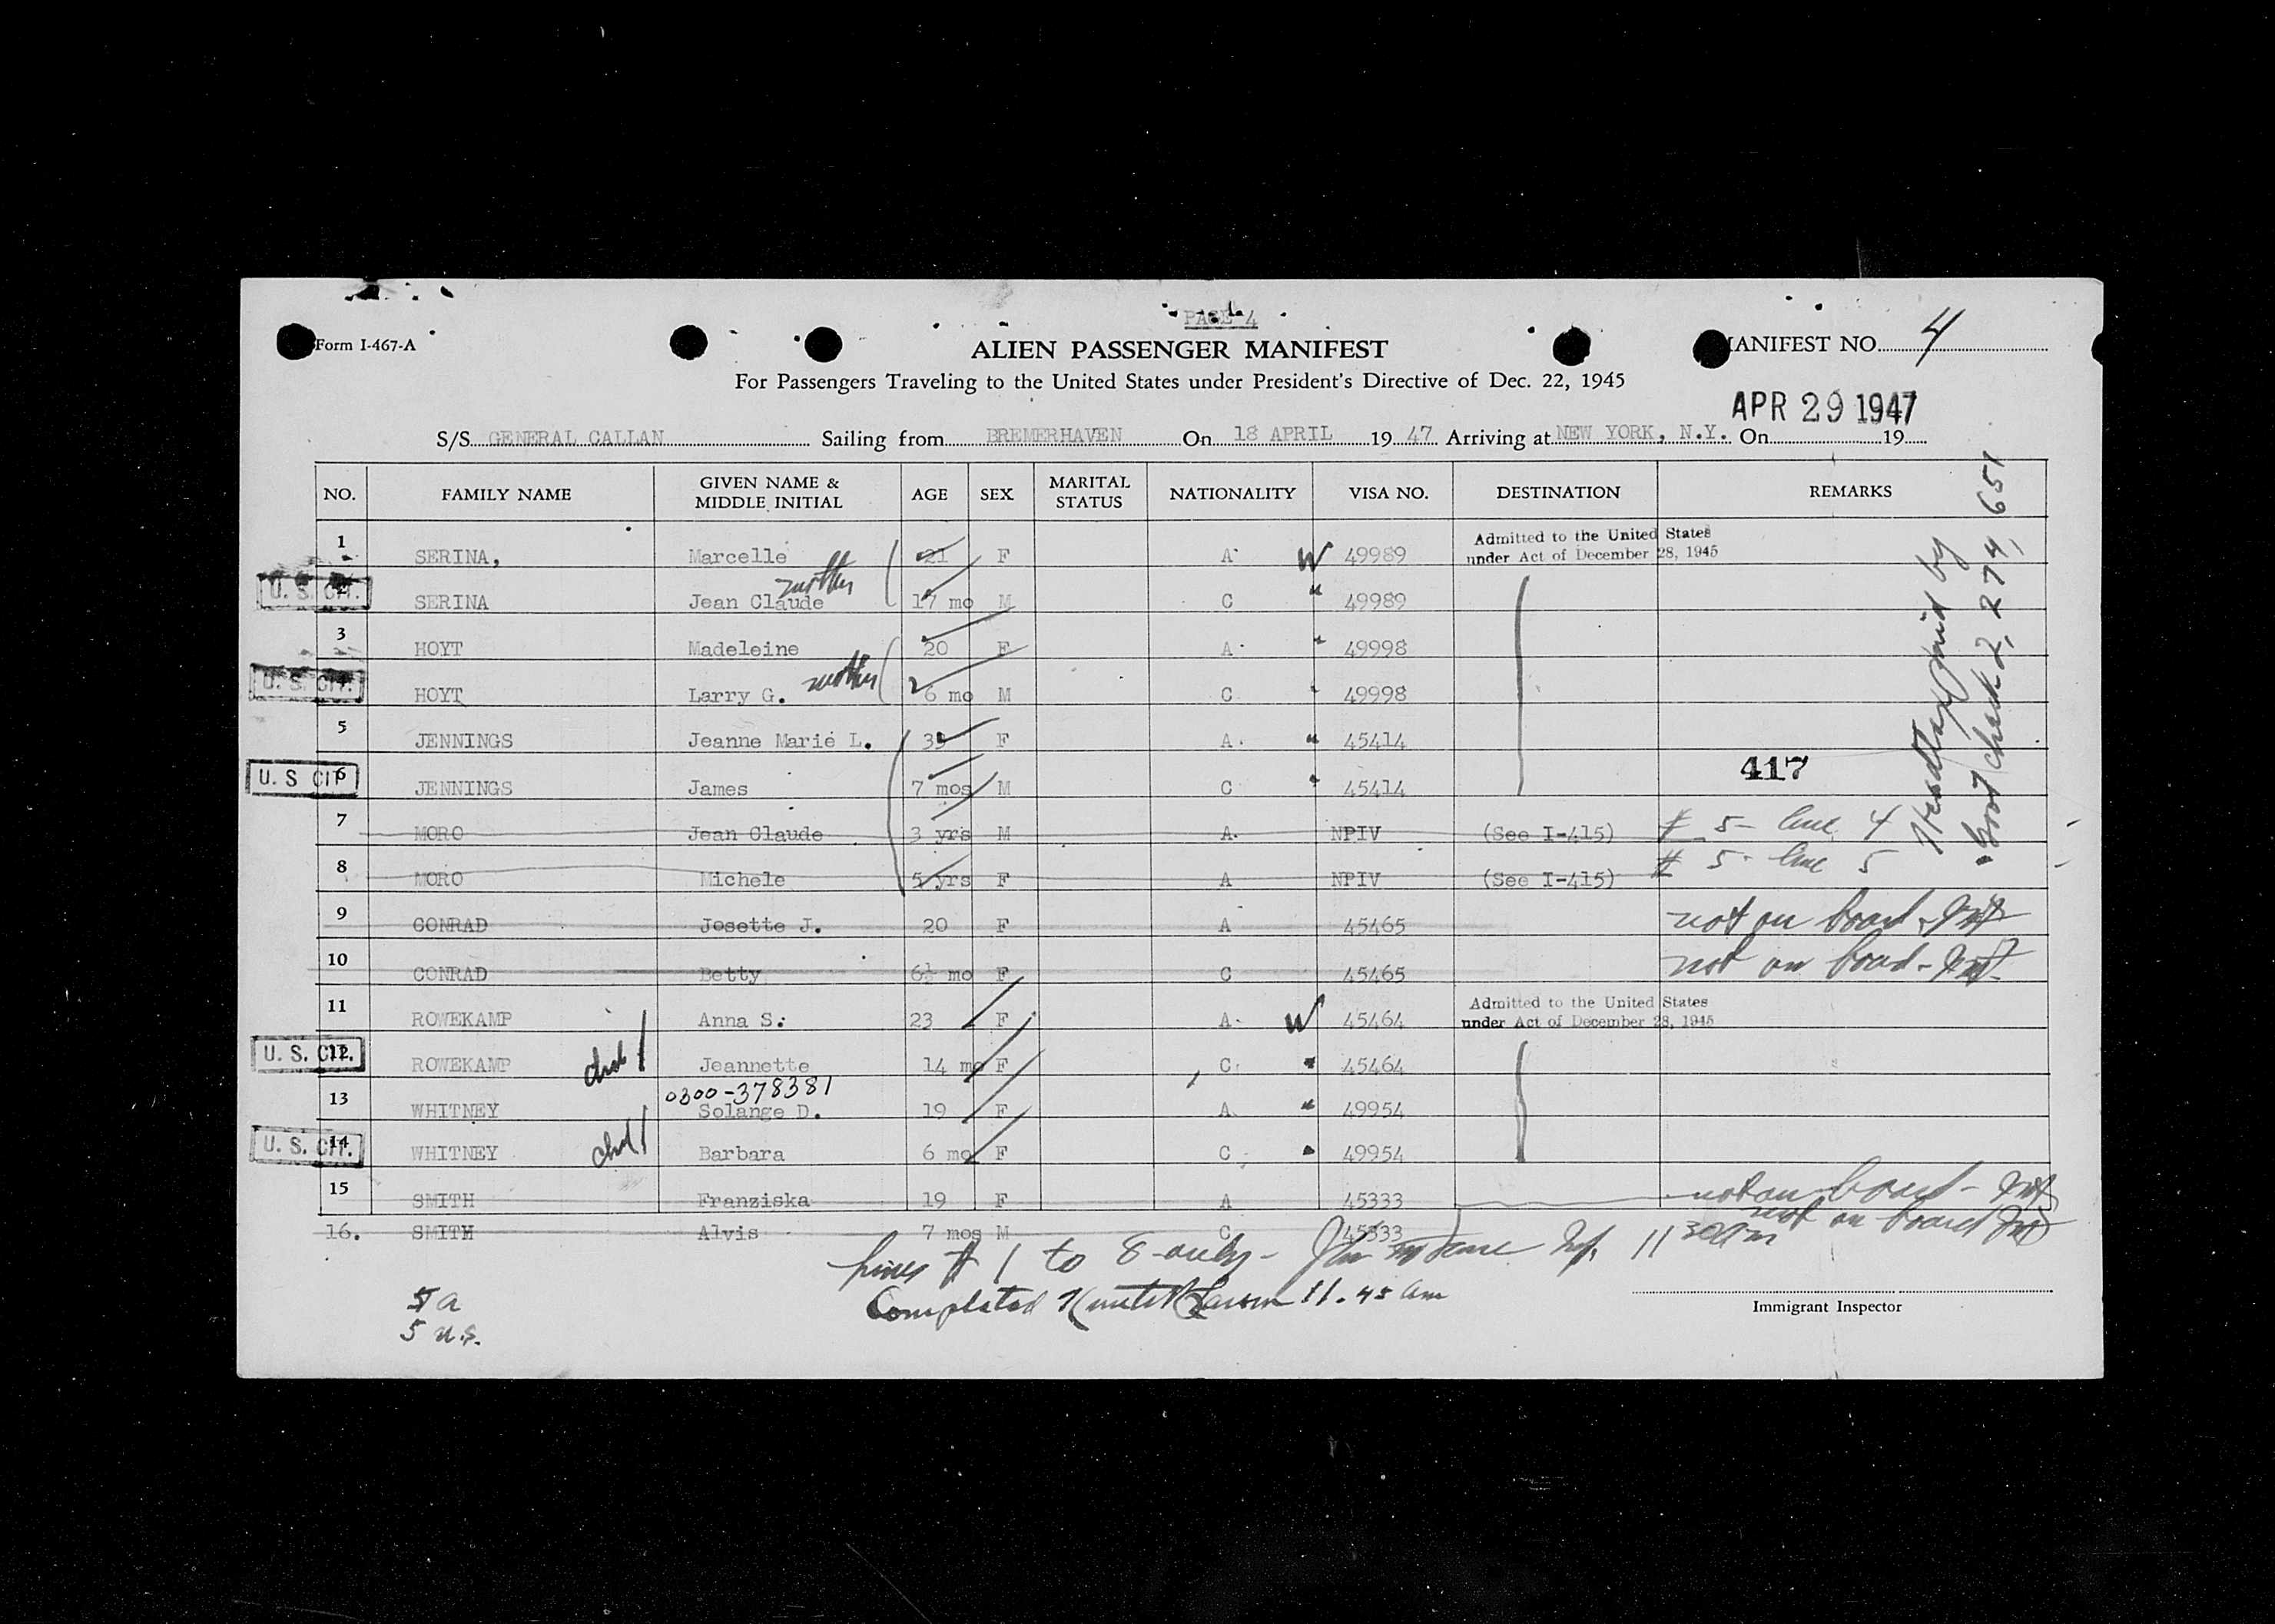 PAGE 4
Form I-467-A
ALIEN PASSENGER MANIFEST
MANIFEST NO. 4
For Passengers Traveling to the United States under President's Directive of Dec. 22, 1945
APR 29 1947
S/S GENERAL CALLAN Sailing from BREMERHAVEN On 18 APRIL 19 47 Arriving at NEW YORK, N.Y. On 19
NO. FAMILY NAME GIVEN NAME & MIDDLE INITIAL AGE SEX MARITAL STATUS NATIONALITY VISA NO. DESTINATION REMARKS
Headtax paid by
Govt check 2,274,651
1 SERINA, Marcelle 21 F A W 49989 Admitted to the United States under Act of December 28, 1945
U. S. CIT. SERINA Jean Claude mother 17 mo M C " 49989
3 HOYT Madeleine 20 F A " 49998
U. S. CIT. HOYT Larry G. mother 6 mo M C " 49998
5 JENNINGS Jeanne Marie L. 35 F A " 45414
U. S CIT 6 JENNINGS James 7 mos M C " 45414 417
7 MORO Jean Claude 3 yrs M A NPIV (See I-415) # 5- line 4
8 MORO Michele 5 yrs F A NPIV (See I-415) # 5- line 5
9 CONRAD Josette J. 20 F A 45465 not on board
10 CONRAD Betty 6½ mo F C 45465 not on board
11 ROWEKAMP Anna S. 23 F A W 45464 Admitted to the United States under Act of December 28, 1945
U. S. CIT. 12 ROWEKAMP Jeannette 14 mo F C " 45464
0300-378381
13 WHITNEY Solange D. 19 F A " 49954
U. S. CIT. 14 WHITNEY Barbara 6 mo F C " 49954
15 SMITH Franziska 19 F A 45333 not on board
16. SMITH Alvis 7 mos M C 45333 not on board
Lines # 1 to 8 only - 11 30 am
Completed 11.45 am
5 a
5 u.s.
Immigrant Inspector